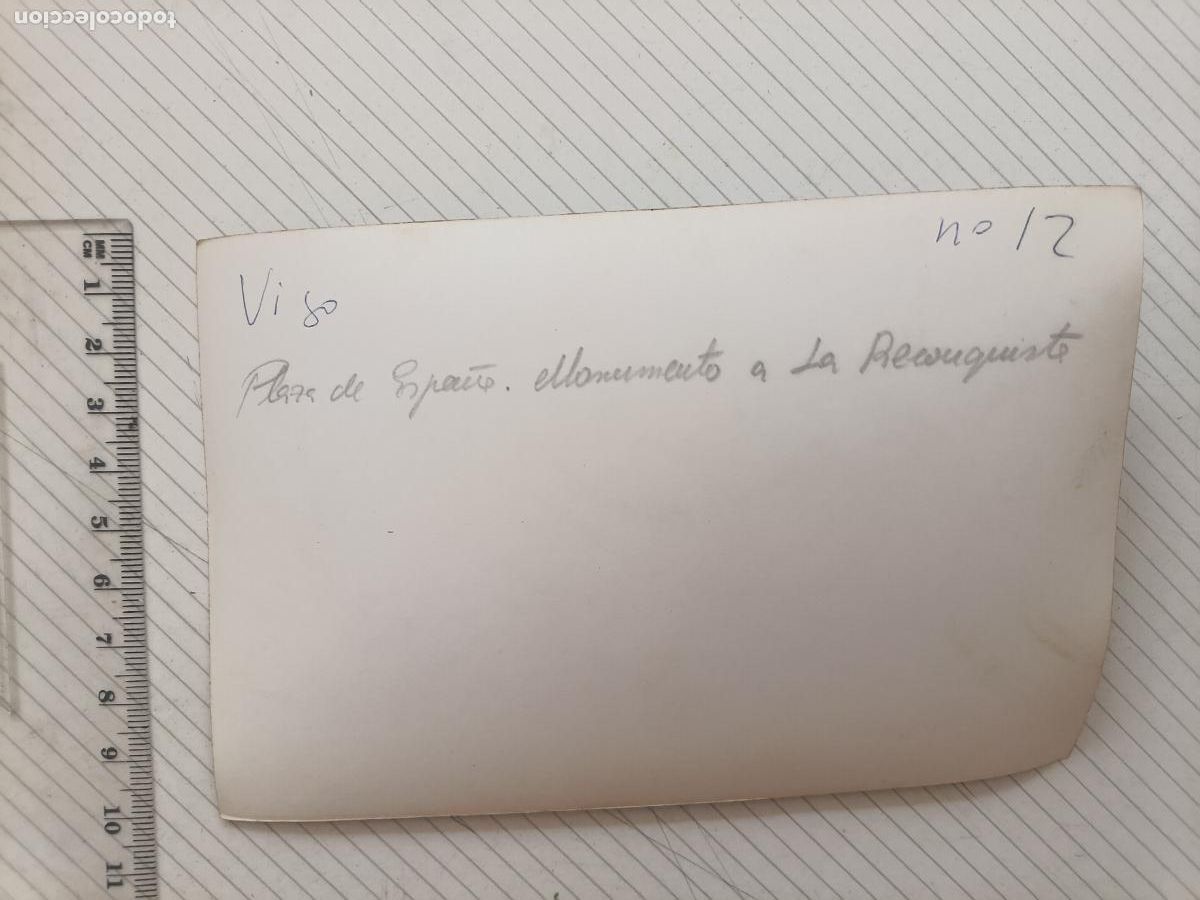 todocoleccion
nº 12
Vigo
Plaza de España. Monumento a La Reconquista
MM
CM
1
2
3
4
5
6
7
8
9
10
11